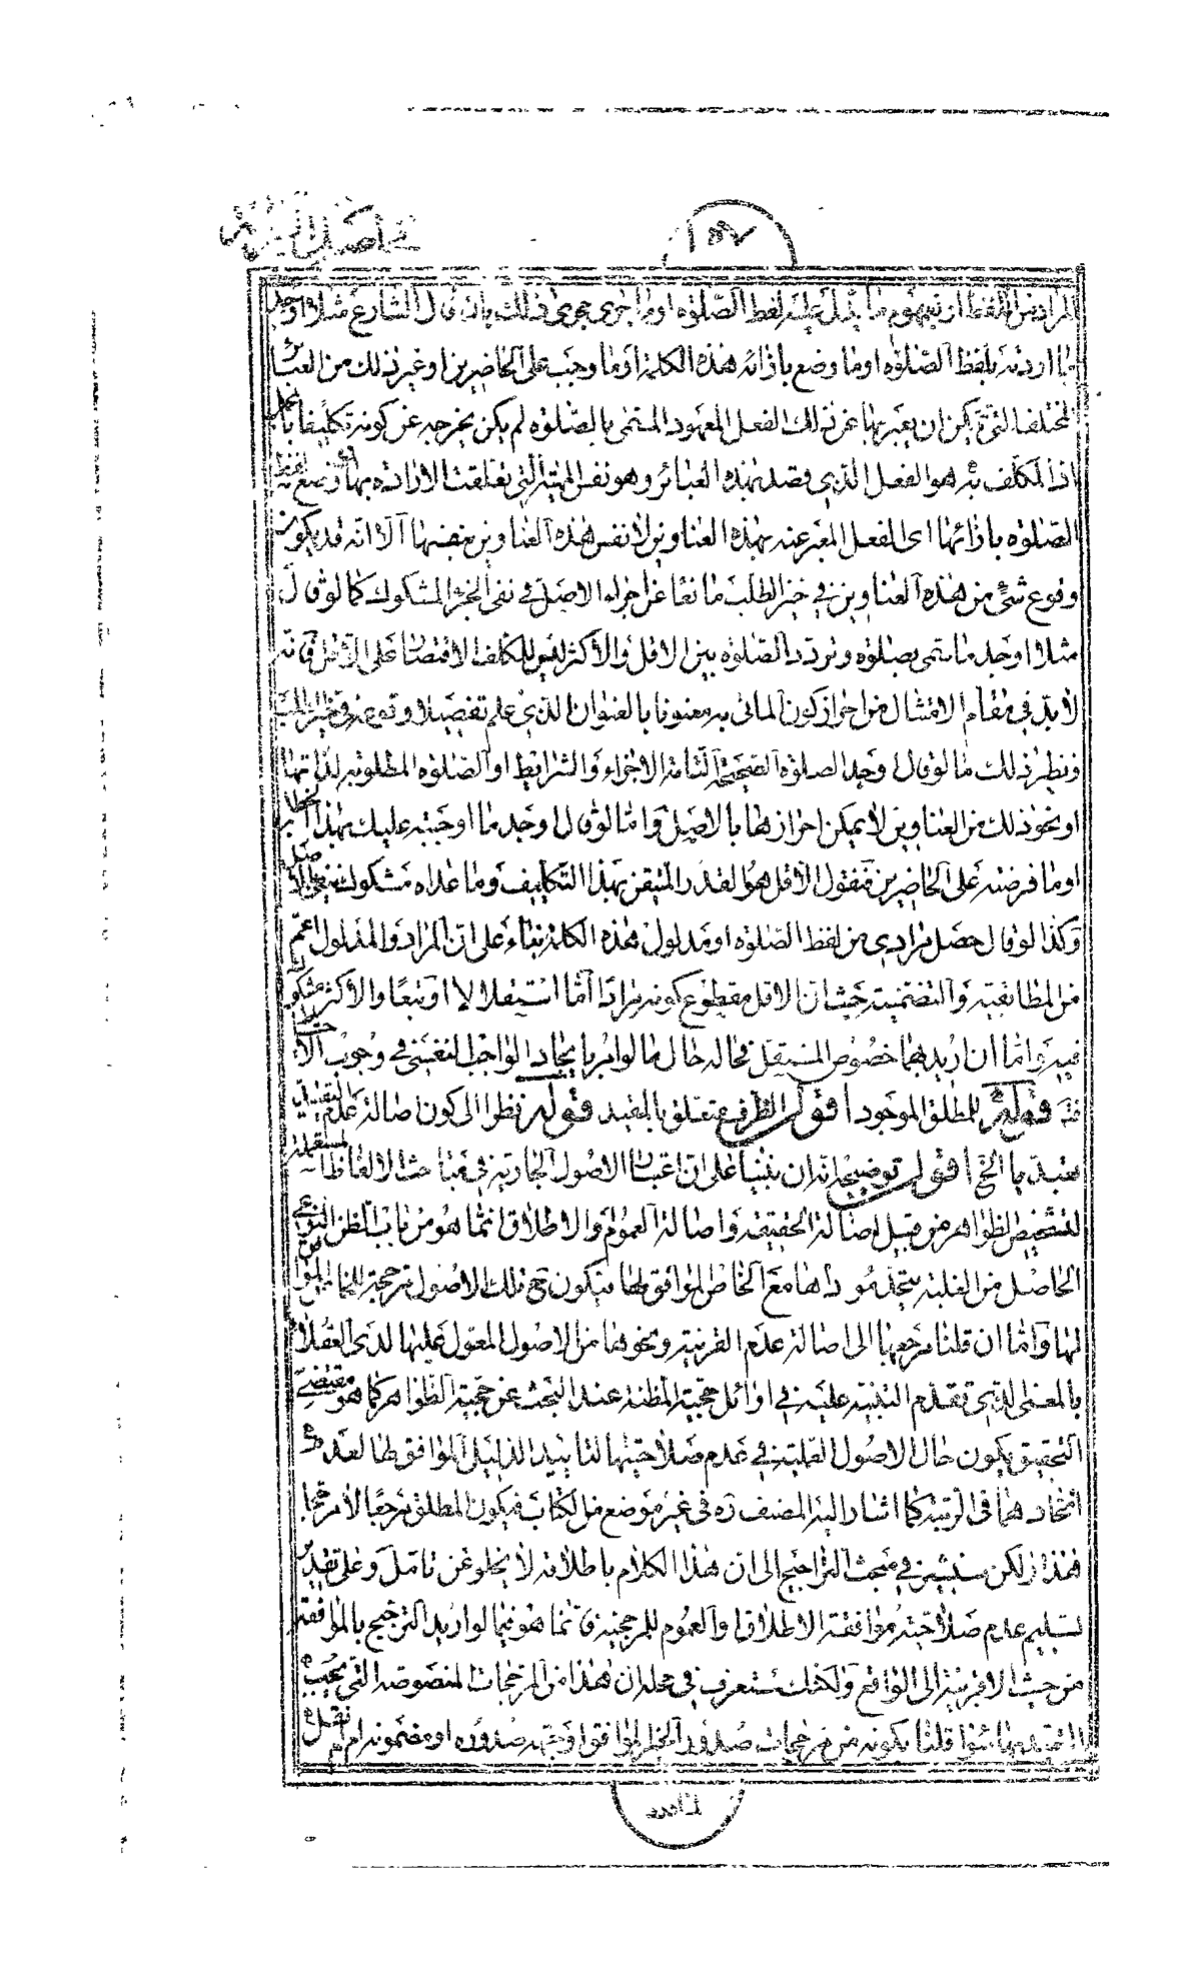 في اصل البرائة
١٥٧
المراد من اللفظ او مفهوم ما يدل عليه لفظ الصلوة او ما جرى مجرى ذلك بان قال الشارع مثلا اوجد
ما اردته بلفظ الصلوة او ما وضع بازائه هذه الكلمة او ما وجب على الحاضرين او غير ذلك من العبائر
المختلفة التي يمكن ان يعبر بها عن ذلك الفعل المعهود المسمى بالصلوة لم يكن يخرجه عن كونه تكليفا بالمجمل
اذ المكلف به هو الفعل الذي قصد بهذه العبائر وهو نفس المهية التي تعلقت الارادة بها ووضع لفظ
الصلوة بازائها اى الفعل المعبر عنه بهذه العناوين لا نفس هذه العناوين بعضها الا انه قد يكون
وقوع شئ من هذه العناوين في حيز الطلب مانعا عن اجراء الاصل في نفى الجزء المشكوك كما لو قال
مثلا اوجد ما يسمى بصلوة وتردد الصلوة بين الاقل والاكثر ليس للمكلف الاقتصار على الاقل فانه
لا بد في مقام الامتثال من احراز كون الماتى به معنونا بالعنوان الذي علم تفصيلا وقوعه في حيز الطلب
ونظير ذلك ما لو قال وجد الصلوة الصحيحة التامة الاجزاء والشرايط او الصلوة المطلوبة لذاتها
او نحو ذلك من العناوين لا يمكن احرازها بالاصل واما لو قال اوجد ما اوجبته عليك بهذا الخطاب
او ما فرضته على الحاضرين فنقول الاقل هو القدر المتيقن بهذا التكليف وما عداه مشكوك ينفى بالاصل
وكذا لو قال حصل مرادي من لفظ الصلوة او مدلول هذه الكلمة بناء على ان المراد والمدلول اعم
من المطابقية والتضمنية حيث ان الاقل مقطوع كونه مرادا اما استقلالا او تبعا والاكثر مشكوك
فيه واما ان اريد بهما خصوص المستقل فحاله حال ما لو امر بايجاد الواجب النفسي في وجوب الاحتياط
فتد قوله للمطلق الموجود اقول الظرف متعلق بالمقيد قوله نظرا الى كون اصالة عدم التقييد
تعبدية الخ اقول توضيحه انه ان بنينا على ان اعتبار الاصول الجارية في مباحث الالفاظ المستعملة
لتشخيص الظواهر من قبيل اصالة الحقيقة واصالة العموم والاطلاق انما هو من باب الظن النوعي
الحاصل من الغلبة يتحد مؤداها مع الخاص الموافق لها فيكون مع تلك الاصول مرجحة للخاص الموافق
لها واما ان قلنا مرجعها الى اصالة عدم القرينة ونحوها من الاصول المعول عليها لدى العقلاء
بالمعنى الذي تقدم التنبيه عليه في اوائل حجية المظنة عند البحث عن حجية الظواهر كما هو مقتضى
التحقيق يكون حال الاصول العملية في عدم صلاحيتها لتاييد الدليل الموافق لها لعدم
اتحادهما في الرتبة كما اشار اليه المصنف ره في غير موضع من الكتاب فيكون المطلق مرجعا لا مرجحا
فتد لكن سنشير في مبحث التراجيح الى ان هذا الكلام باطلاقه لا يخلو عن تامل وعلى تقدير
تسليم عدم صلاحية موافقة الاطلاق والعموم للمرجحية فانما هو فيما لو اريد الترجيح بالموافقة
من حيث الاقربية الى الواقع ولكنك ستعرف في محله ان هذا من المرجحات المنصوصة التي يجب
الاخذ بها سواء قلنا بكونه من مرجحات صدور الخبر الموافق او جهة صدوره او مضمونه ام لم نقل